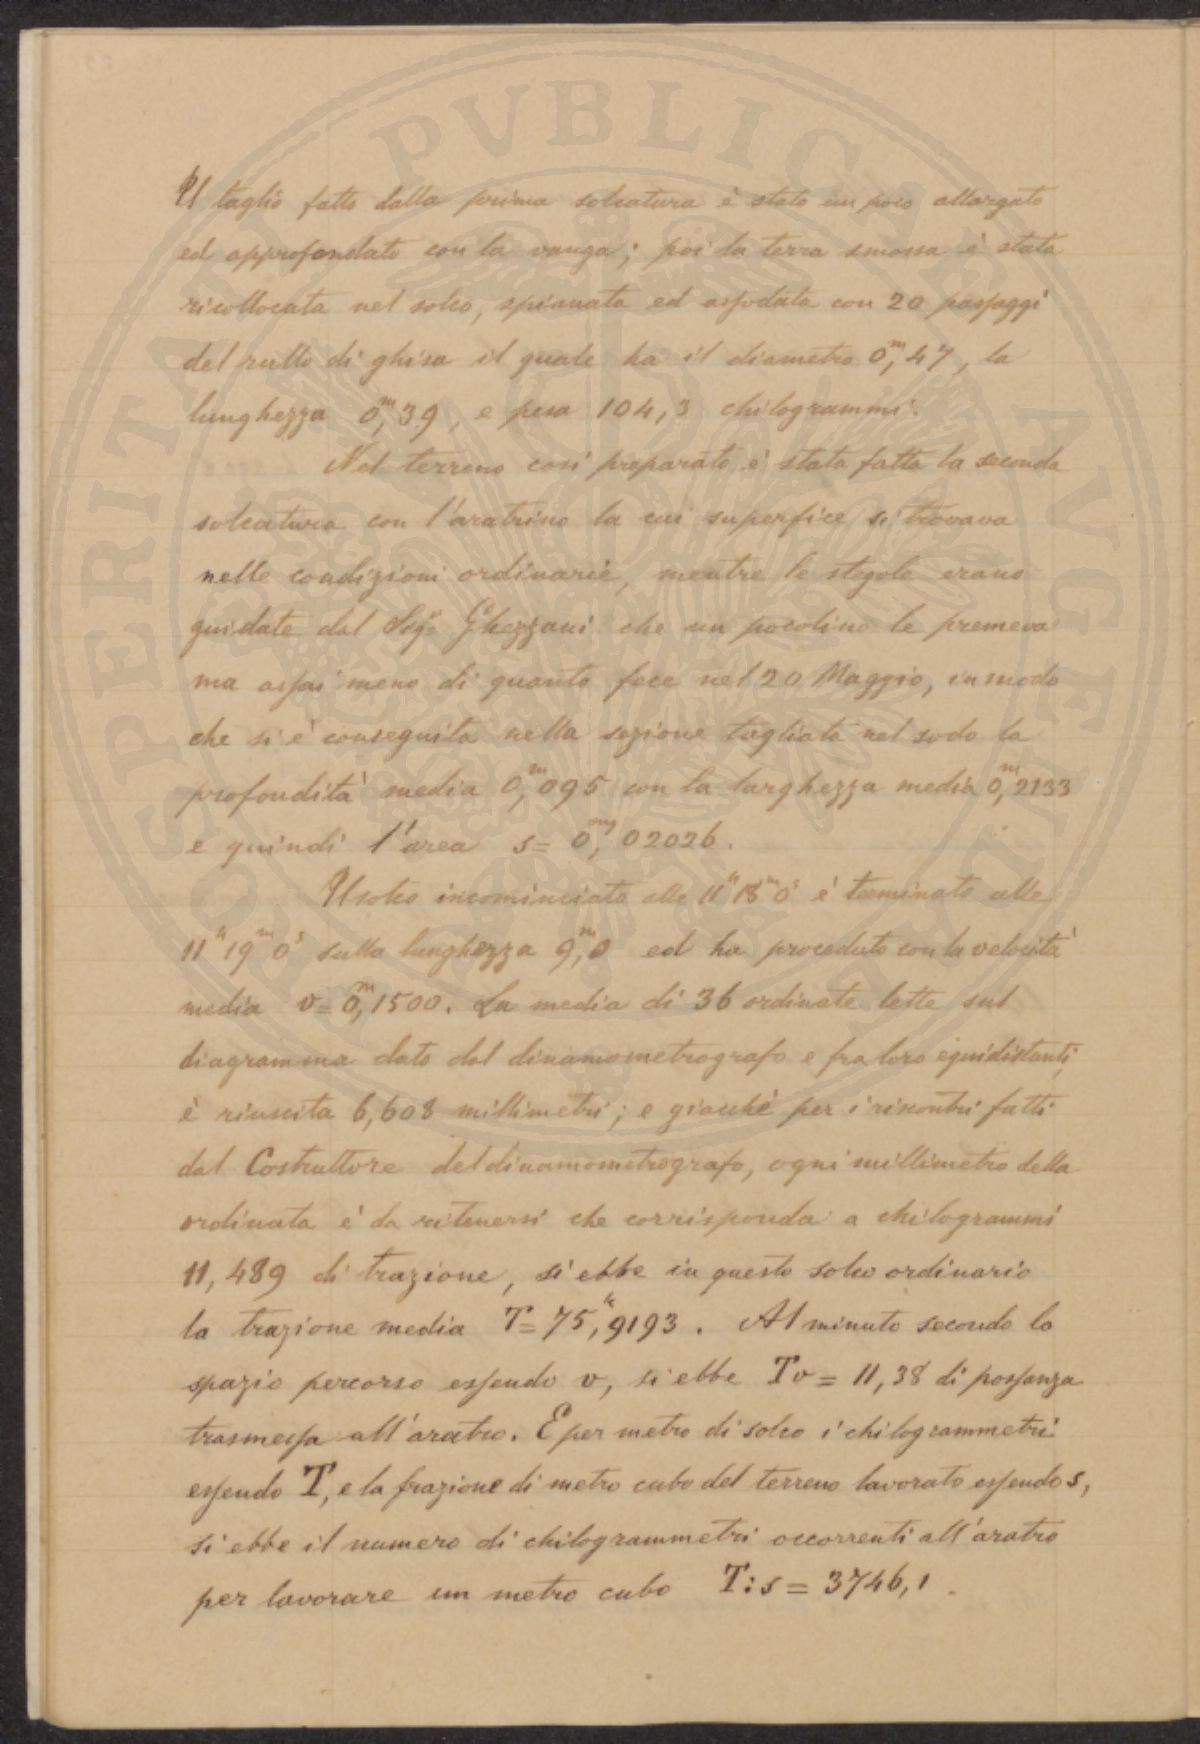 Il taglio fatto dalla prima solcatura è stato un poco allargato
ed approfondato con la vanga; poi la terra smossa è stata
ricollocata nel solco, spianata ed assodata con 20 passaggi
del rullo di ghisa il quale ha il diametro 0,ᵐ47, la
lunghezza 0,ᵐ39, e pesa 104,3 chilogrammi.
Nel terreno così preparato è stata fatta la seconda
solcatura con l'aratrino la cui superfice si trovava
nelle condizioni ordinarie, mentre le stegole erano
guidate dal Sigʳ Ghezzani che un pocolino le premeva
ma assai meno di quanto fece nel 20 Maggio, in modo
che si è conseguita nella sezione tagliata nel sodo la
profondità media 0,ᵐ095 con la larghezza media 0,ᵐ2133
e quindi l'area s = 0,ᵐq02026.
Il solco incominciato alle 11ʰ 18ᵐ 0ˢ è terminato alle
11ʰ 19ᵐ 0ˢ sulla lunghezza 9,ᵐ0 ed ha proceduto con la velocità
media v = 0,ᵐ1500. La media di 36 ordinate lette sul
diagramma dato dal dinamometrografo e fra loro equidistanti,
è riuscita 6,608 millimetri; e giacchè per i riscontri fatti
dal Costruttore del dinamometrografo, ogni millimetro della
ordinata è da ritenersi che corrisponda a chilogrammi
11,489 di trazione, si ebbe in questo solco ordinario
la trazione media T = 75,ᵏ9193. Al minuto secondo lo
spazio percorso essendo v, si ebbe Tv = 11,38 di possanza
trasmessa all'aratro. E per metro di solco i chilogrammetri
essendo T, e la frazione di metro cubo del terreno lavorato essendo s,
si ebbe il numero di chilogrammetri occorrenti all'aratro
per lavorare un metro cubo T:s = 3746,1.
PVBLICAE
PROSPERITATI
AVGENDAE